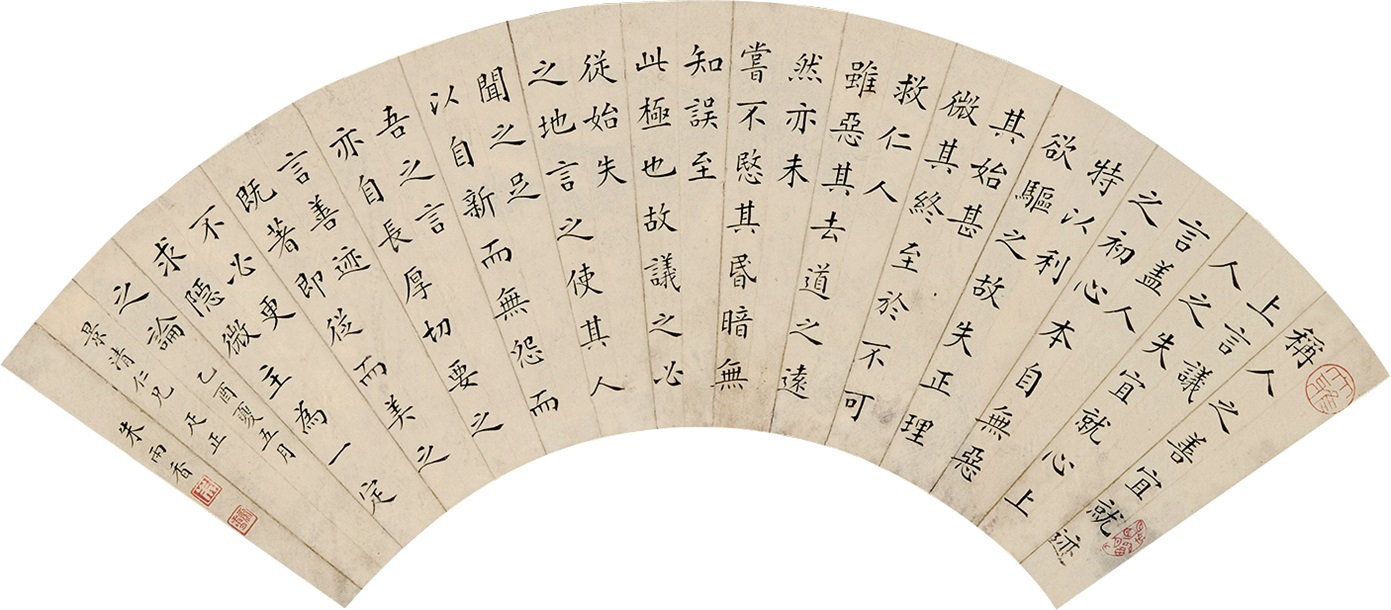 稱人之善宜就迹
上言議
人之失宜就心上
言盖人
之初心本自無惡
特以利
欲驅之故失正理
其始甚
微其終至於不可
救仁人
雖惡其去道之遠
然亦未
嘗不愍其昬暗無
知誤至
此極也故議之必
從始失
之地言之使其人
聞之足
以自新而無怨而
吾之言
亦自長厚切要之
言善迹
既著即從而美之
不必更
求隱微主為一定
之論
乙酉夏五月
景清仁兄疋正
朱雨香